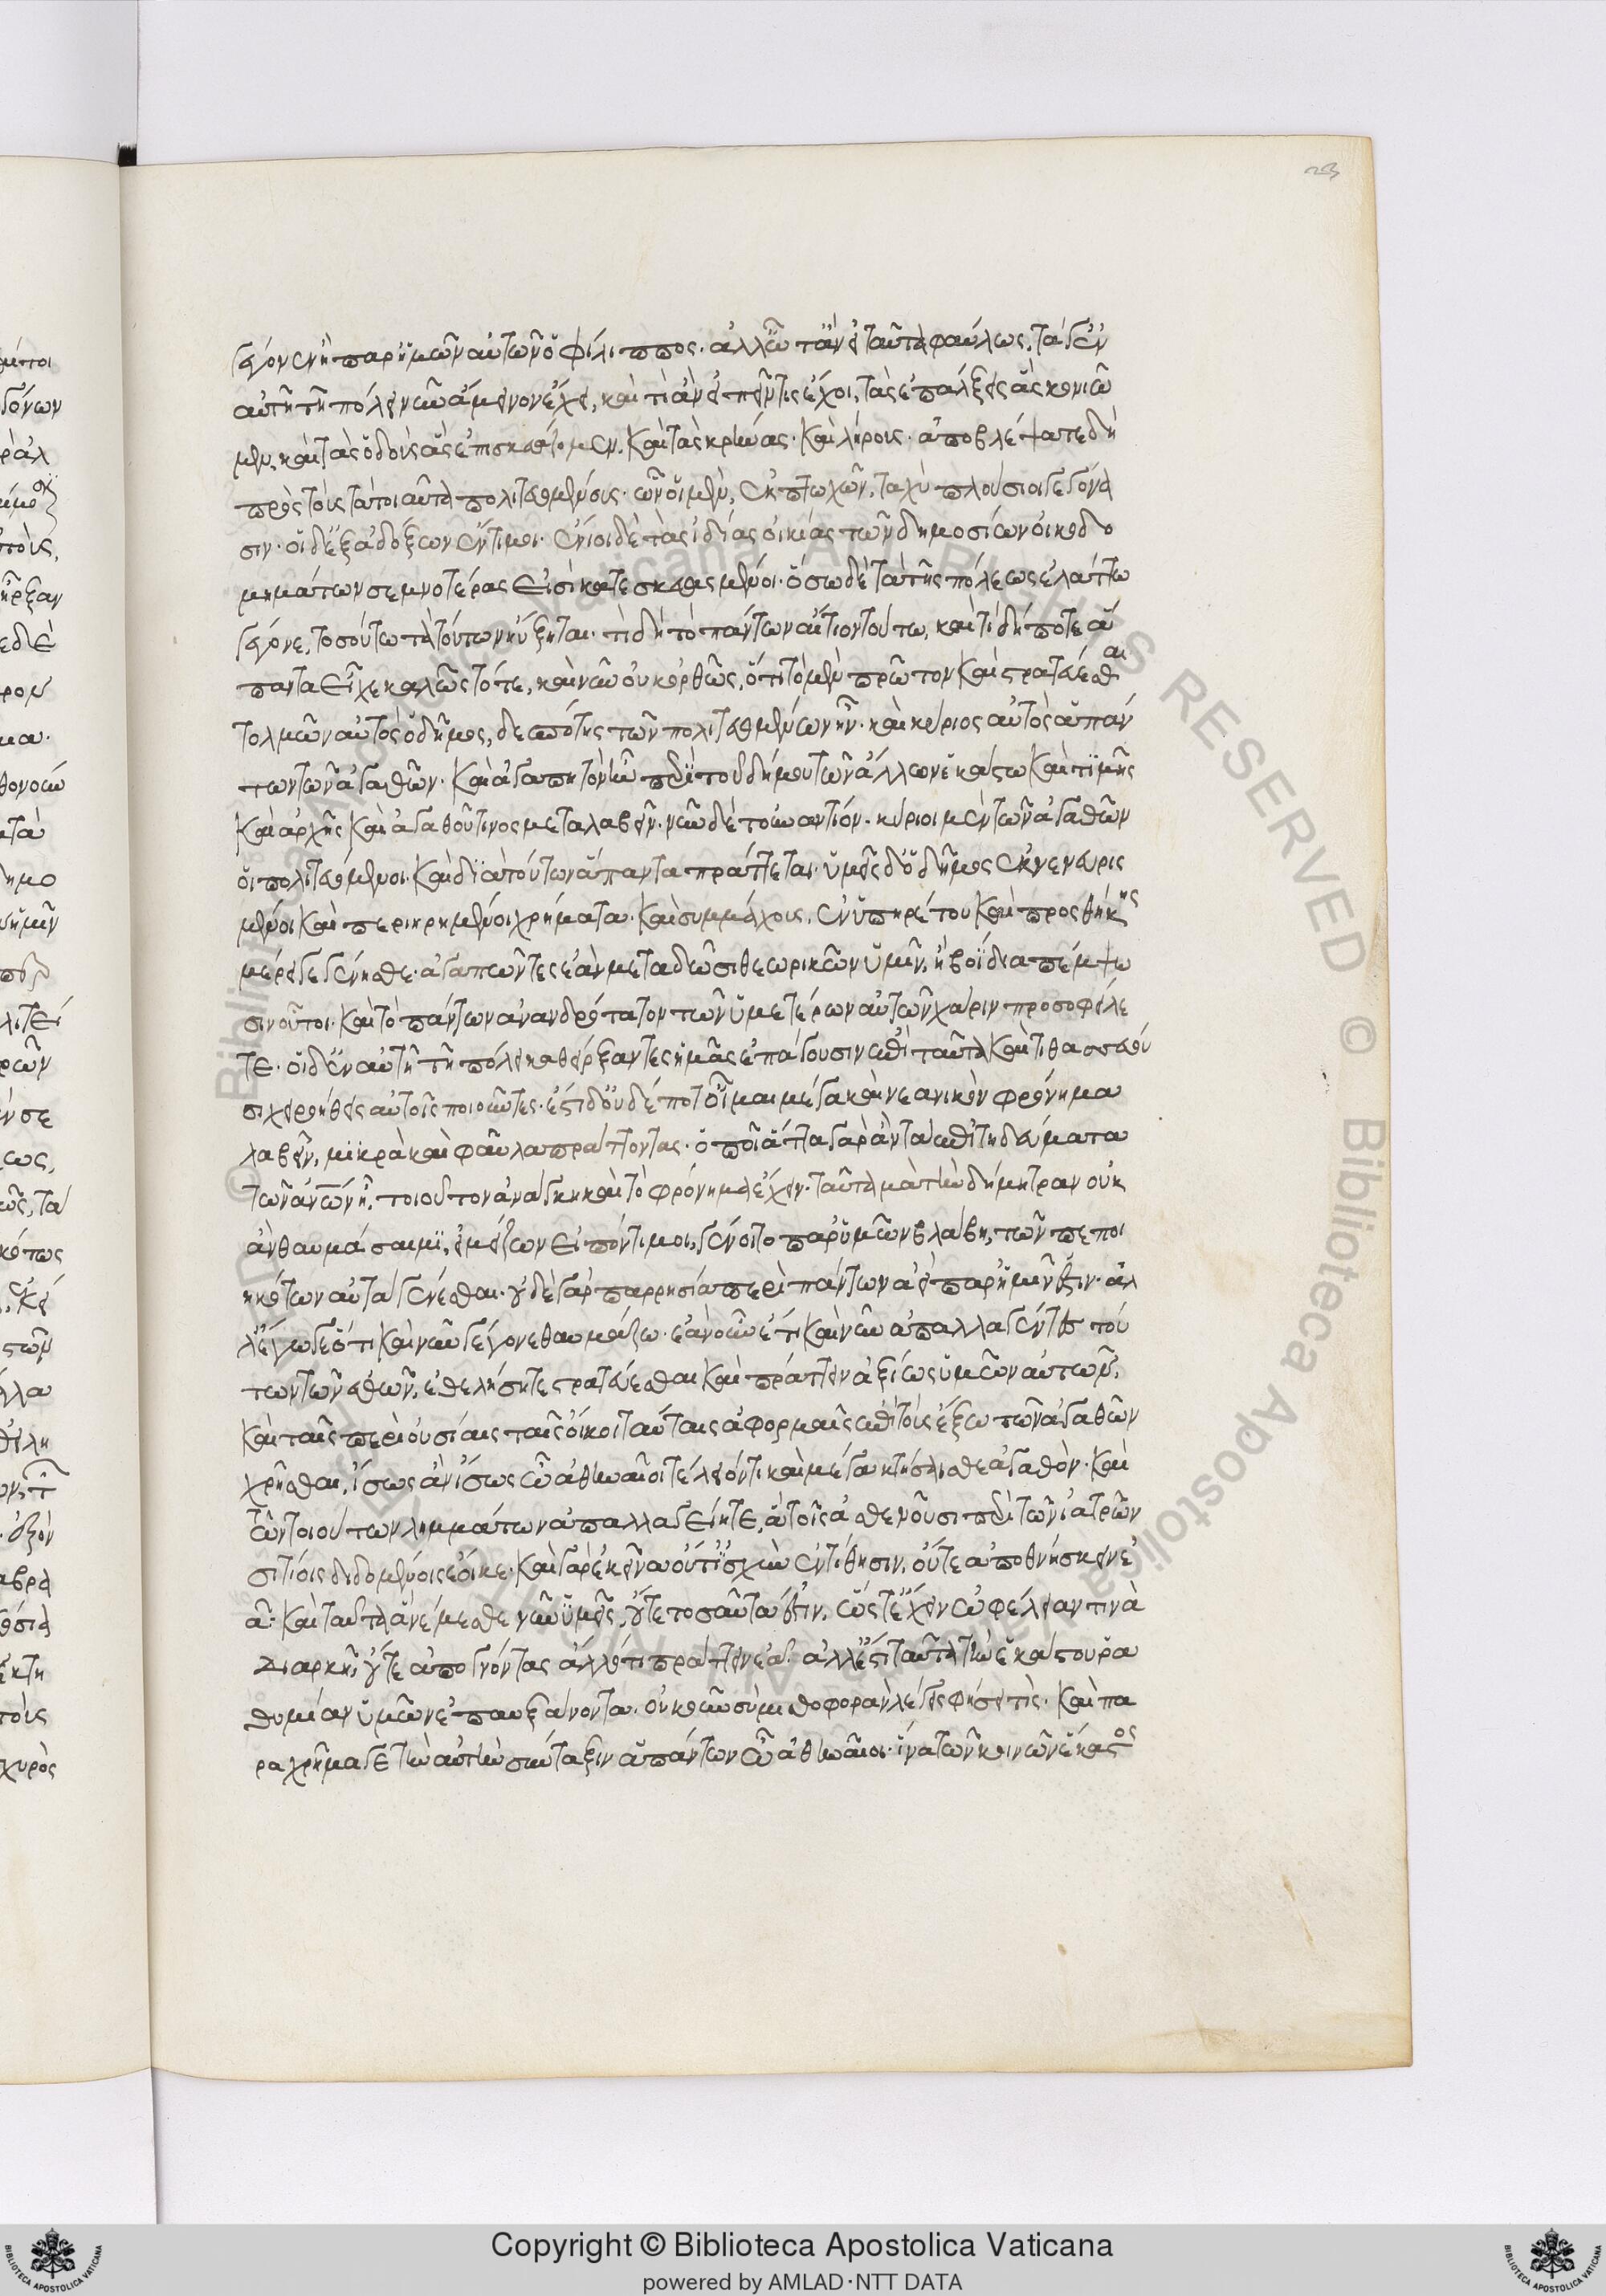 γέγονεν ἢ παρ' ἡμῶν αὐτῶν ὁ φίλιππος. ἀλλ' ὦ τὰν εἰ ταῦτα φαύλως, τά γ' ἐν
αὐτῇ τῇ πόλει νῦν ἄμεινον ἔχει, καὶ τί ἂν εἰπεῖν τις ἔχοι, τὰς ἐπάλξεις ἃς κονιῶ
μεν, καὶ τὰς ὁδοὺς ἃς ἐπισκευάζομεν. καὶ τὰς κρήνας. καὶ λήρους. ἀποβλέψατε δὴ
πρὸς τοὺς τὰ τοιαῦτα πολιτευομένους. ὧν οἱ μὲν, ἐκ πτωχῶν, ταχὺ πλούσιοι γεγόνα
σιν. οἱ δ' ἐξ ἀδόξων ἔντιμοι. ἔνιοι δὲ τὰς ἰδίας οἰκίας τῶν δημοσίων οἰκοδο
μημάτων σεμνοτέρας εἰσὶ κατεσκευασμένοι. ὅσω δὲ τὰ τῆς πόλεως ἐλάττω
γέγονε, τοσούτω τὰ τούτων ηὔξηται. τί δὴ τὸ πάντων αἴτιον τούτων, καὶ τί δή ποτε ἅ
παντα εἶχε καλῶς τότε, καὶ νῦν οὐκ ὀρθῶς, ὅτι τὸ μὲν πρῶτον καὶ στρατεύεσθαι
τολμῶν αὐτὸς ὁ δῆμος, δεσπότης τῶν πολιτευομένων ἦν. καὶ κύριος αὐτὸς ἁπάν
των τῶν ἀγαθῶν. καὶ ἀγαπητὸν ἦν παρὰ τοῦ δήμου τῶν ἄλλων ἑκάστω καὶ τιμῆς
καὶ ἀρχῆς καὶ ἀγαθοῦ τινος μεταλαβεῖν. νῦν δὲ τοὐναντίον. κύριοι μὲν τῶν ἀγαθῶν
οἱ πολιτευόμενοι. καὶ διὰ τούτων ἅπαντα πράττεται. ὑμεῖς δ' ὁ δῆμος ἐκνενευρισ
μένοι καὶ περιηρημένοι χρήματα. καὶ συμμάχους, ἐν ὑπηρέτου καὶ προσθήκης
μέρει γεγένησθε. ἀγαπῶντες ἐὰν μεταδῶσι θεωρικῶν ὑμῖν. ἢ βοΐδια πέμψω
σιν οὗτοι. καὶ τὸ πάντων ἀνανδρότατον τῶν ὑμετέρων αὐτῶν χάριν προσοφείλε
τε. οἱ δ' ἐν αὐτῇ τῇ πόλει καθείρξαντες ἡμᾶς ἐπάγουσιν ἐπὶ ταῦτα καὶ τιθασσεύου
σι χειροήθεις αὐτοῖς ποιοῦντες. ἔστι δ' οὐδέποτ' οἶμαι μέγα καὶ νεανικὸν φρόνημα
λαβεῖν, μικρὰ καὶ φαῦλα πράττοντας. ὁποῖ' ἄττα γὰρ ἂν τὰ ἐπιτηδεύματα
τῶν ἀνων ᾖ, τοιοῦτον ἀνάγκη καὶ τὸ φρόνημα ἔχειν. ταῦτα μὰ τὴν δήμητραν οὐκ
ἂν θαυμάσαιμι, εἰ μείζων εἰπόντι μοι, γένοιτο παρ' ὑμῶν βλάβη, τῶν πεποι
ηκότων αὐτὰ γενέσθαι. οὐδὲ γὰρ παρρησία περὶ πάντων ἀεὶ παρ' ἡμῖν ἐστιν. ἀλ
λ' ἔγωγε ὅτι καὶ νῦν γέγονε θαυμάζω. ἐὰν οὖν ἔτι καὶ νῦν ἀπαλλαγέντες τού
των τῶν ἐθῶν, ἐθελήσητε στρατεύεσθαι καὶ πράττειν ἀξίως ὑμῶν αὐτῶν,
καὶ ταῖς περιουσίαις ταῖς οἴκοι ταύταις ἀφορμαῖς ἐπὶ τοὺς ἔξω τῶν ἀγαθῶν
χρῆσθαι, ἴσως ἂν ἴσως ὦ ἀθηναῖοι τέλειόν τι καὶ μέγα κτήσαισθε ἀγαθὸν. καὶ
τῶν τοιούτων λημμάτων ἀπαλλαγείητε, ἃ τοῖς ἀσθενοῦσι παρὰ τῶν ἰατρῶν
σιτίοις διδομένοις ἔοικε. καὶ γὰρ ἐκεῖνα οὔτ' ἰσχὺν ἐντίθησιν, οὔτε ἀποθνήσκειν ἐ
ᾷ. καὶ ταῦτα ἃ νέμεσθε νῦν ὑμεῖς, οὔτε τοσαῦτά ἐστιν, ὥστε ἔχειν ὠφέλειαν τινὰ
διαρκῆ, οὔτε ἀπογνόντας ἄλλό τι πράττειν ἐᾷ. ἀλλ' ἔστι ταῦτα τὴν ἑκάστου ῥα
θυμίαν ὑμῶν ἐπαυξάνοντα. οὐκοῦν σὺ μισθοφορὰν λέγεις φήσει τὶς. καὶ πα
ραχρῆμά γε τὴν αὐτὴν σύνταξιν ἁπάντων ὦ ἀθηναῖοι. ἵνα τῶν κοινῶν ἕκαστος
Copyright © Biblioteca Apostolica Vaticana
powered by AMLAD·NTT DATA